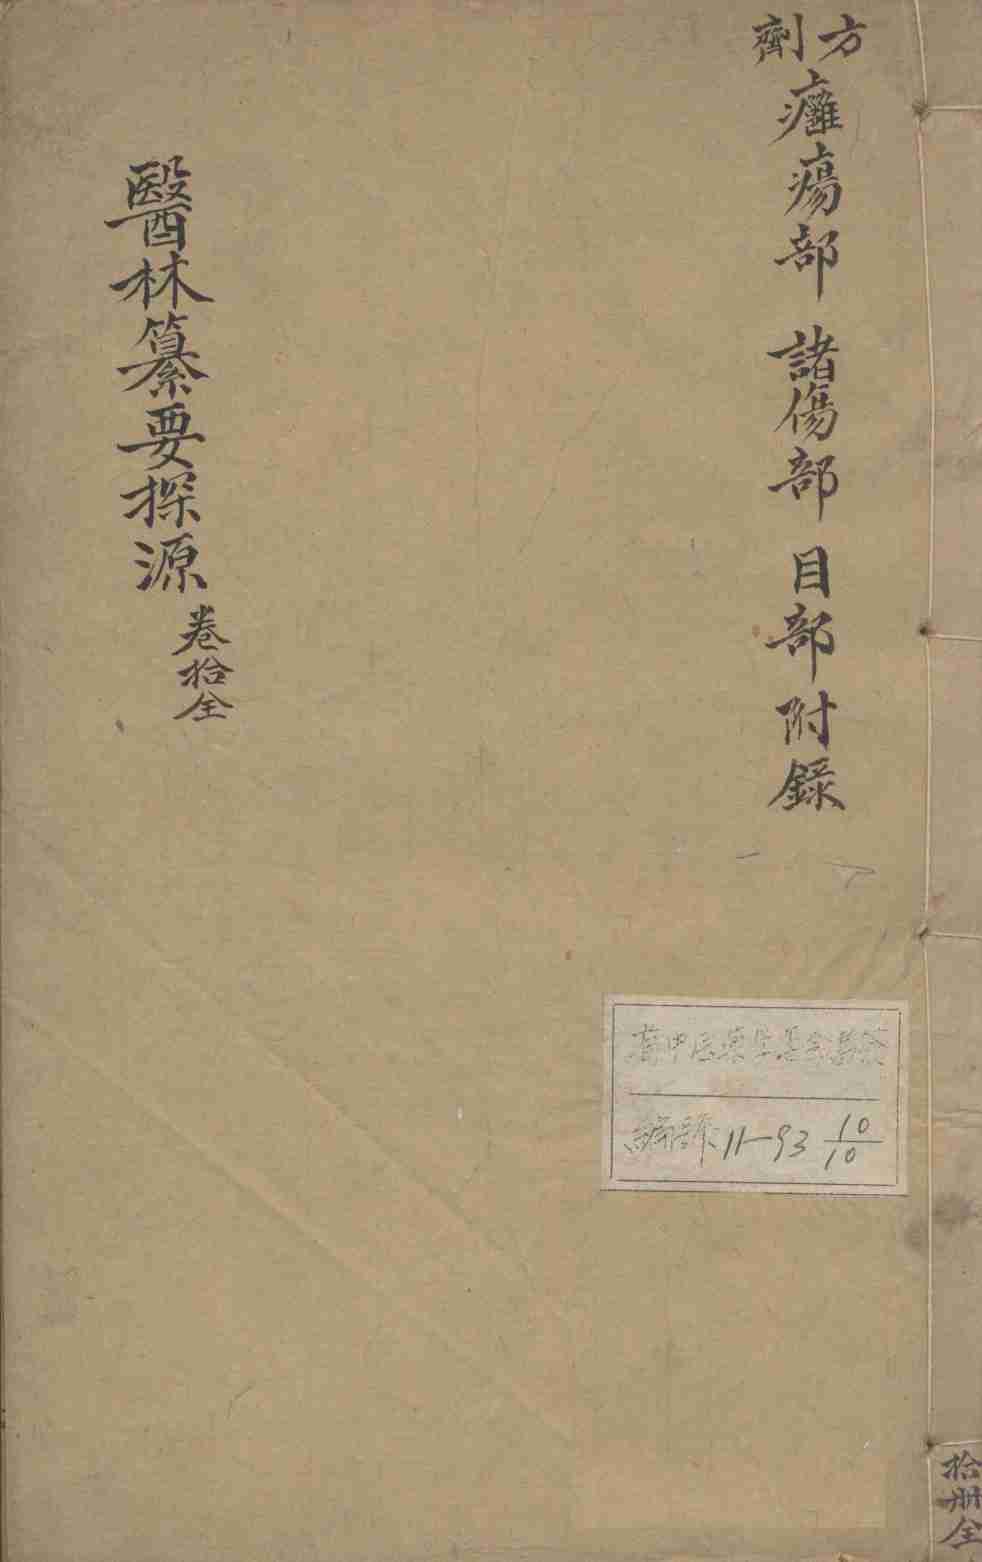 方劑
癰瘍部 諸傷部 目部附錄
醫林纂要探源
卷拾全
編號 11-93 10/10
拾册全